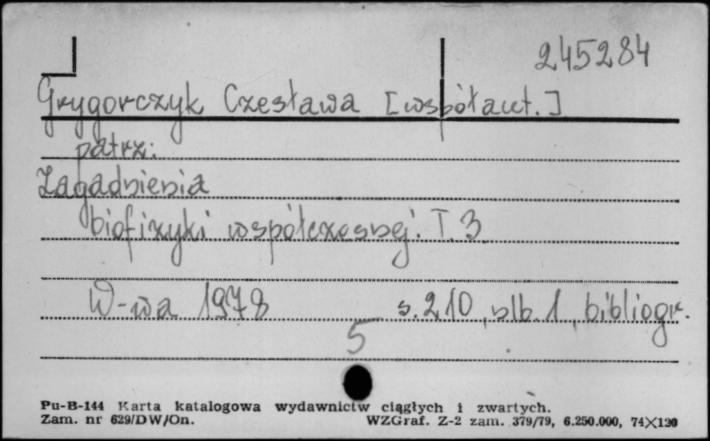 245284
Grygorczyk Czesława [współaut.]
patrz:
Zagadnienia
biofizyki współczesnej. T. 3
W-wa 1978 s. 210, slb. 1, bibliogr.
5
Pu-B-144 Karta katalogowa wydawnictw ciągłych i zwartych.
Zam. nr 629/DW/On. WZGraf. Z-2 zam. 379/79, 6.250.000, 74X120